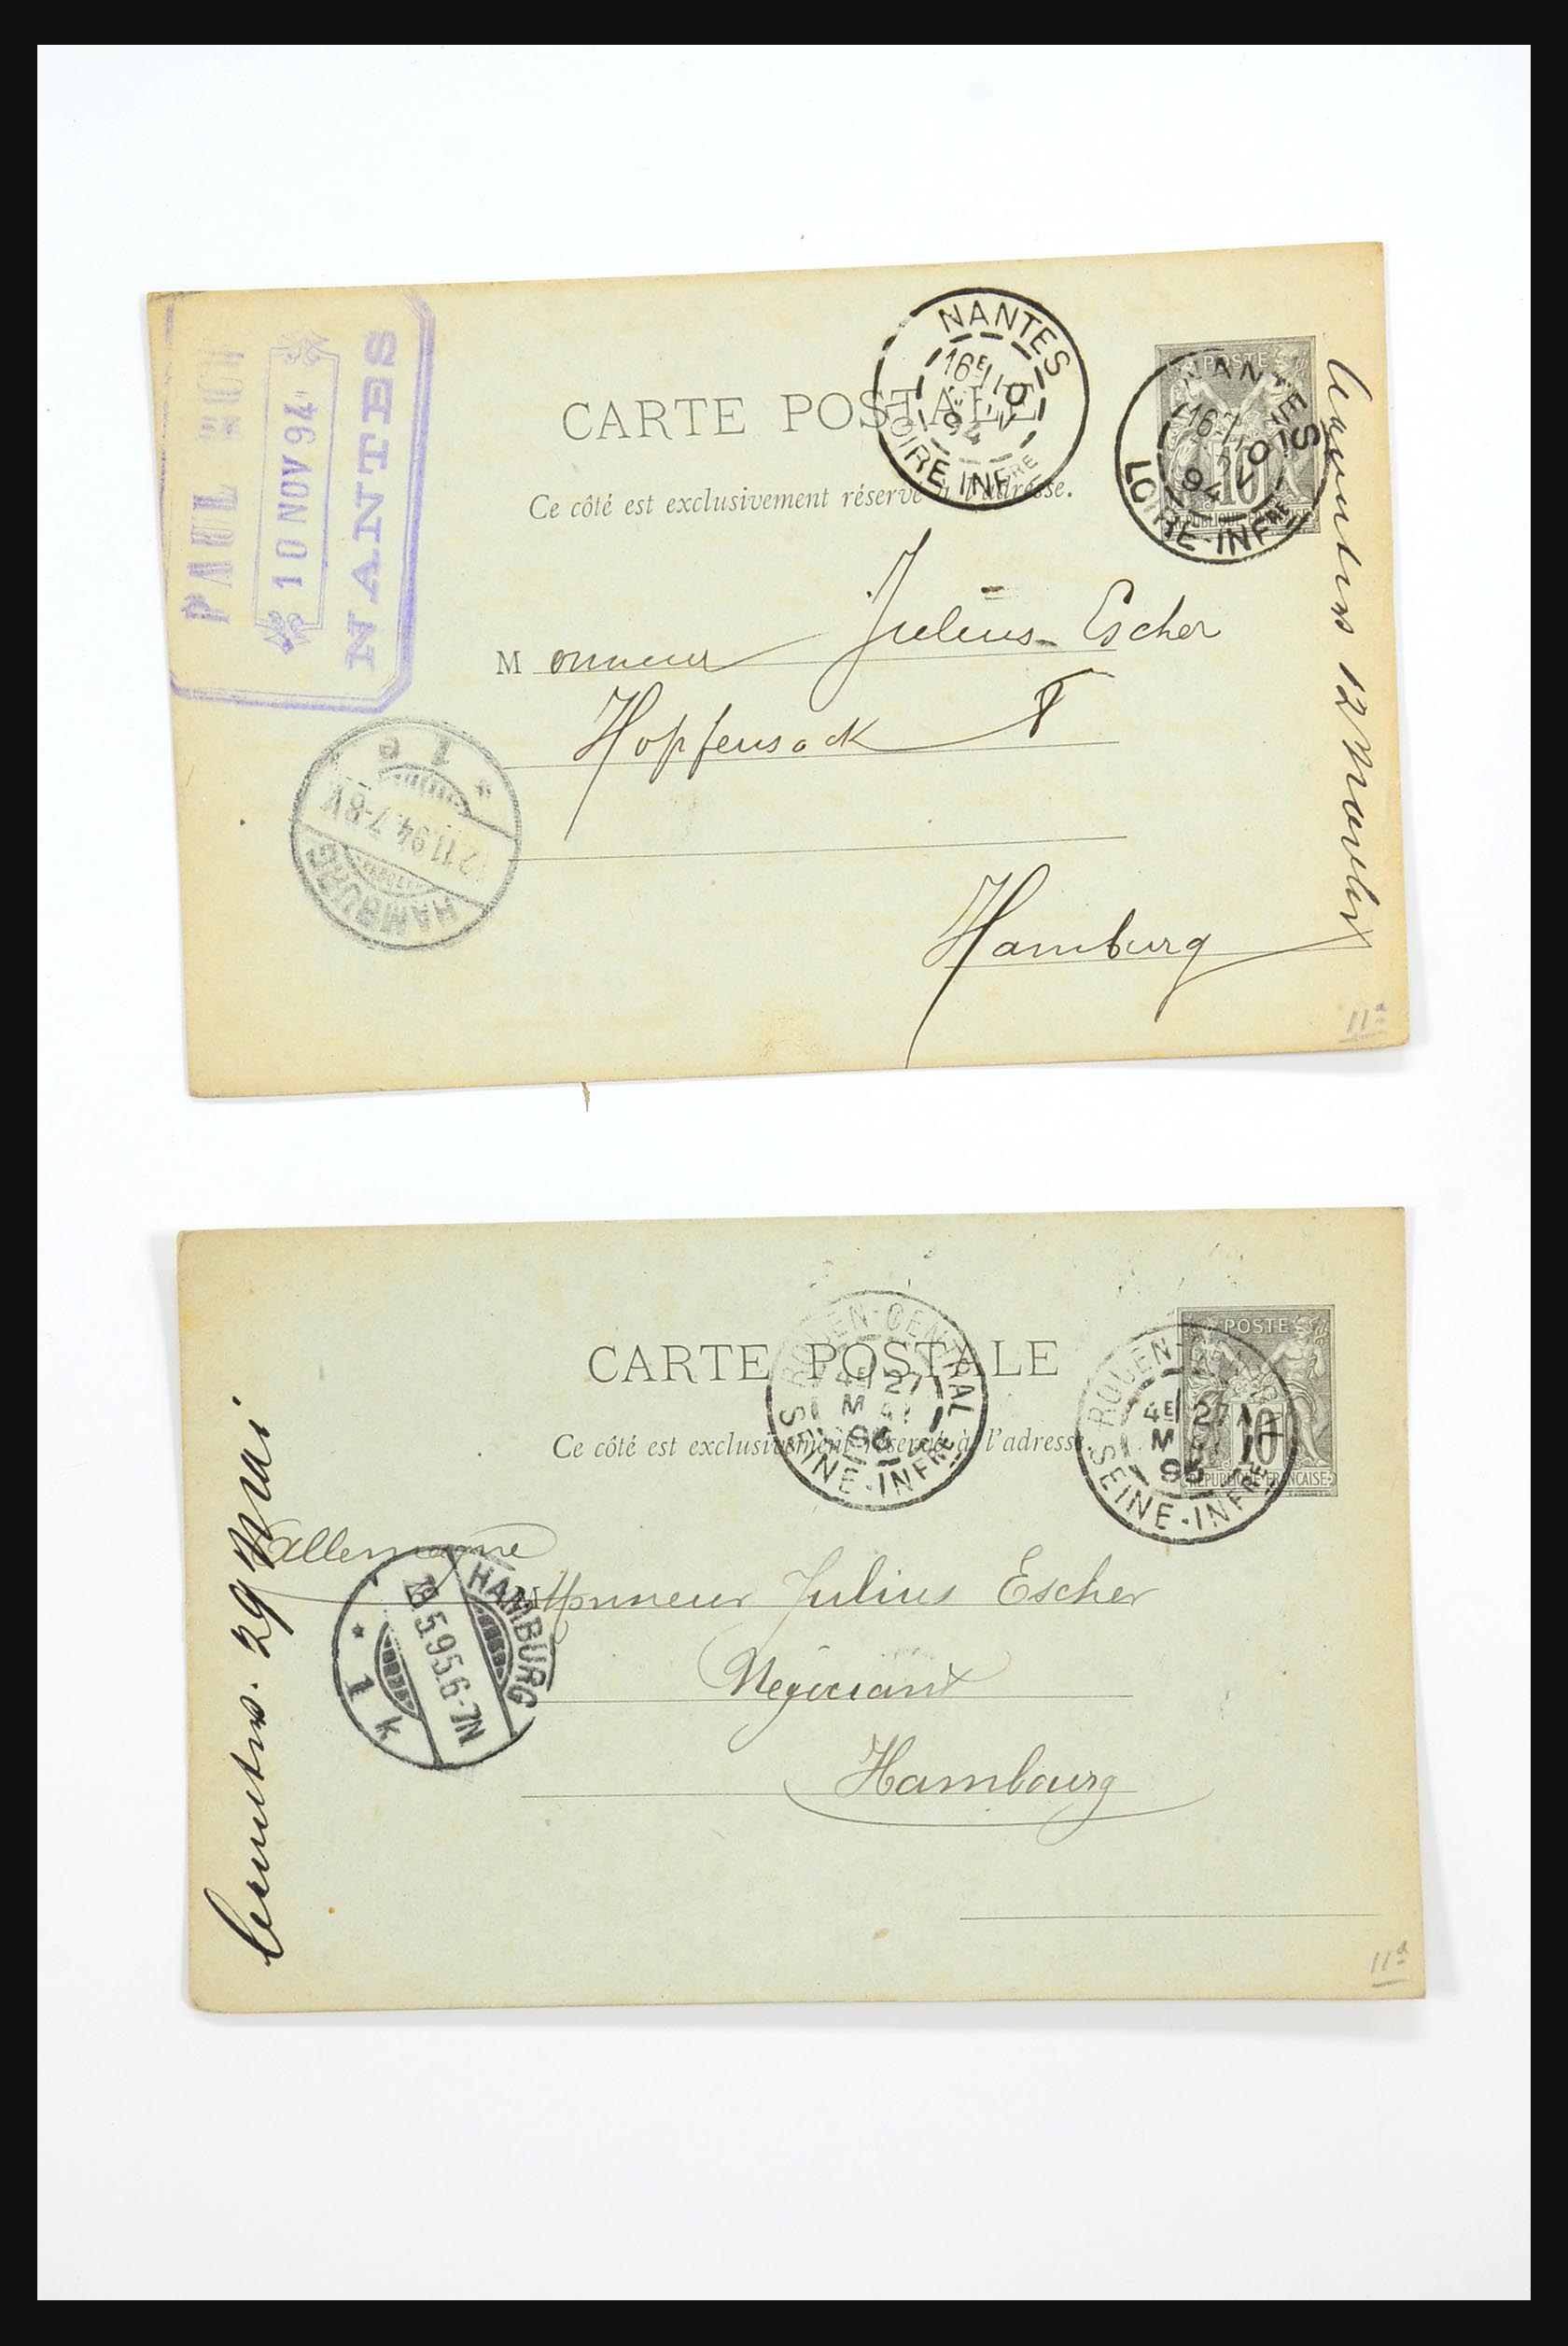 PAUL
10 NOV 94
NANTES
CARTE POSTALE
Ce côté est exclusivement réservé à l'adresse.
NANTES
16E 10
94
LOIRE-INFRE
POSTE
10
RÉPUBLIQUE FRANÇAISE
NANTES
16E 10
94
LOIRE-INFRE
Monsieur Julius Escher
Hopfensack
Hamburg
HAMBURG
12.11.94.7-8V
* 1 c *
12 November
11a
CARTE POSTALE
Ce côté est exclusivement réservé à l'adresse.
ROUEN-CENTRAL
4E 27
MAI
95
SEINE-INFRE
POSTE
10
RÉPUBLIQUE FRANÇAISE
ROUEN-CENTRAL
4E 27
MAI
95
SEINE-INFRE
29 Mai
Allemagne
Monsieur Julius Escher
Négociant
Hambourg
HAMBURG
5.95.6-7N
* 1 k
11a